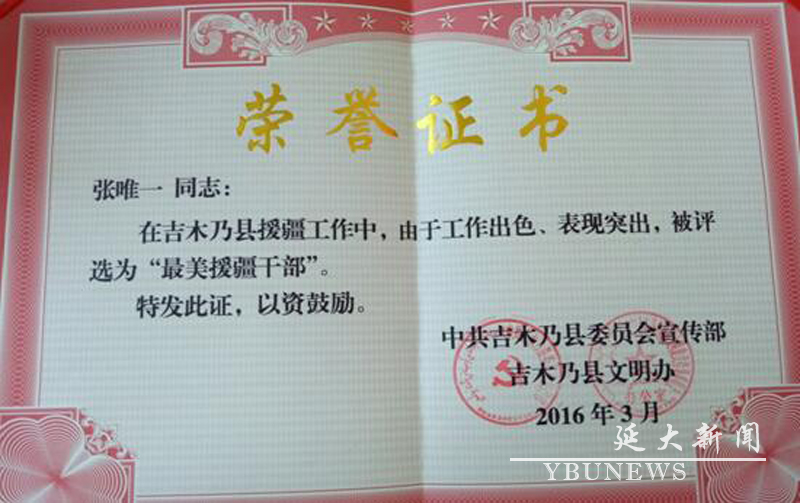 荣誉证书
张唯一 同志：
在吉木乃县援疆工作中，由于工作出色、表现突出，被评
选为“最美援疆干部”。
特发此证，以资鼓励。
中共吉木乃县委员会宣传部
吉木乃县文明办
2016 年 3 月
延大新闻
YBUNEWS